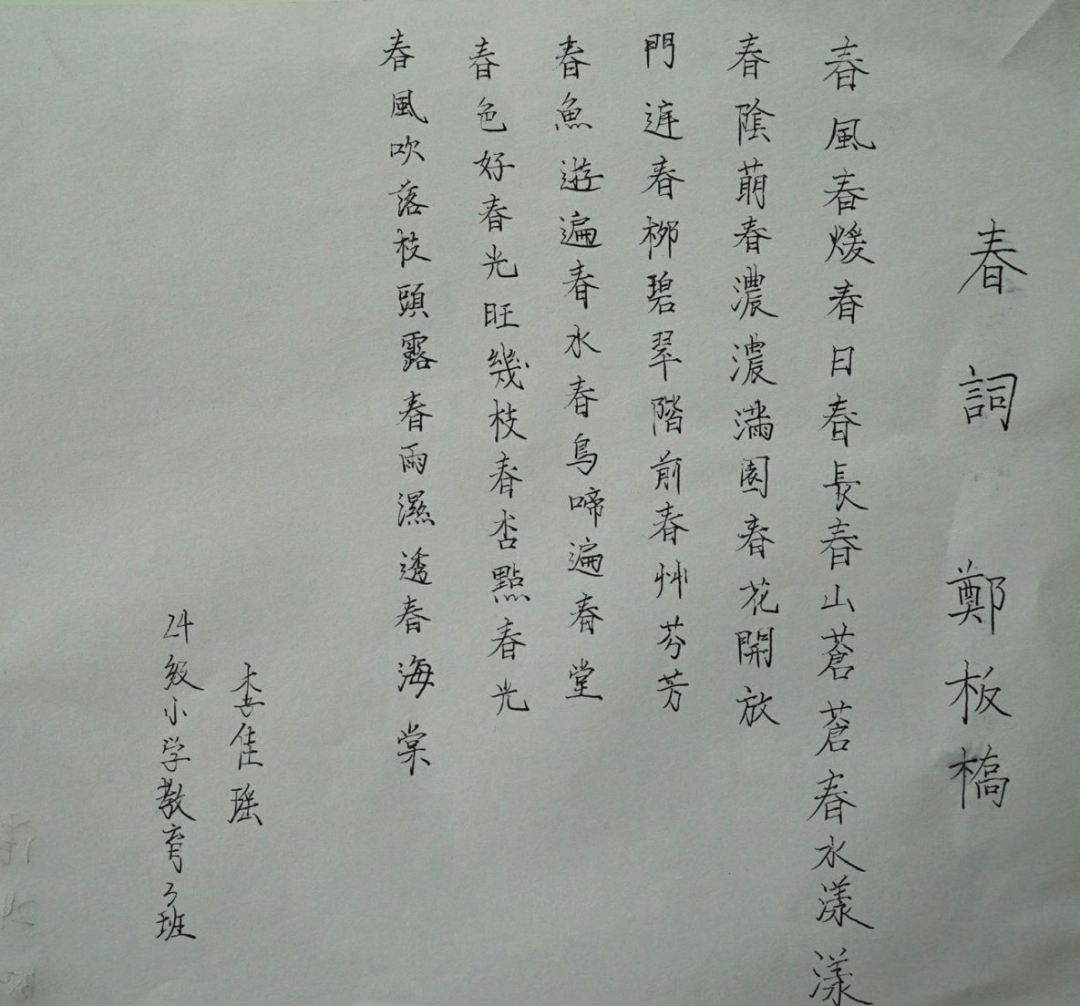 春詞 鄭板橋
春風春煖春日春長春山蒼蒼春水漾漾
春陰萠春濃濃滿園春花開放
門迋春柳碧翠階前春艸芬芳
春魚遊遍春水春鳥啼遍春堂
春色好春光旺幾枝春杏點春光
春風吹落枝頭露春雨濕透春海棠
李佳瑶
24级小学教育3班